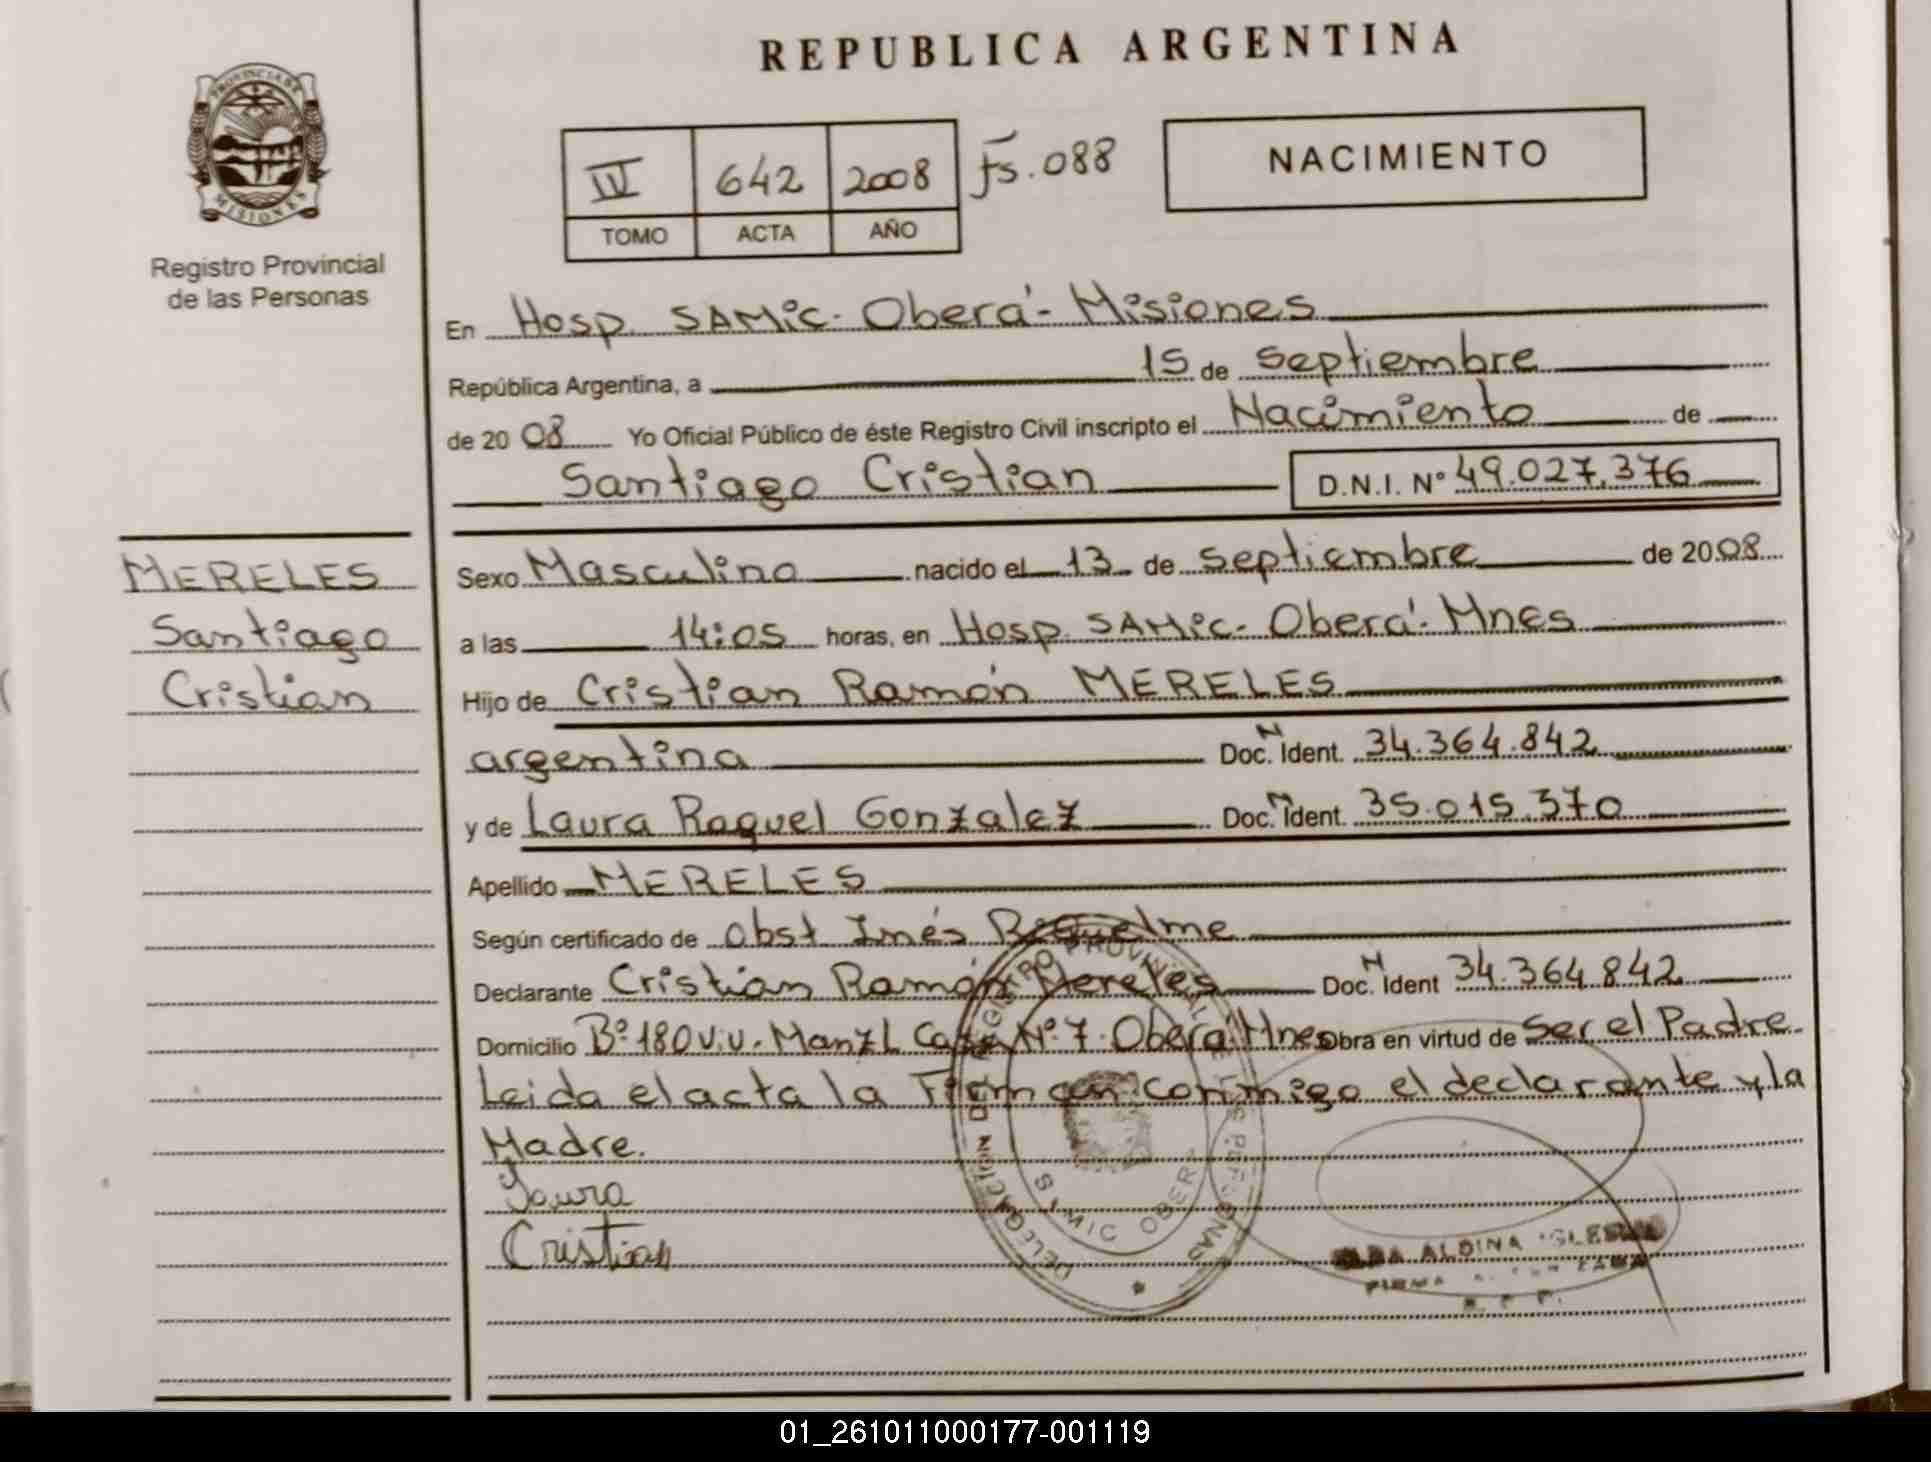 REPUBLICA ARGENTINA
PROVINCIA DE MISIONES
Registro Provincial
de las Personas
IV 642 2008 fs. 088
TOMO ACTA AÑO
NACIMIENTO
En Hosp. SAMIC - Oberá - Misiones
República Argentina, a 15 de Septiembre
de 2008 Yo Oficial Público de éste Registro Civil inscripto el Nacimiento de
Santiago Cristian D.N.I. Nº 49.027.376
MERELES
Santiago
Cristian
Sexo Masculino nacido el 13 de Septiembre de 2008
a las 14:05 horas, en Hosp. SAMIC - Oberá - Mnes
Hijo de Cristian Ramón MERELES
argentina Doc. N Ident. 34.364.842
y de Laura Raquel Gonzalez Doc. N Ident. 35.015.370
Apellido MERELES
Según certificado de Obst Inés Riquelme
Declarante Cristian Ramón Mereles Doc. N Ident 34.364.842
Domicilio Bº 180 Viv. Manz L Casa Nº 7. Oberá Mnes Obra en virtud de Ser el Padre
Leida el acta la Firman conmigo el declarante y la
Madre.
Laura
Cristian
REGISTRO PROVINCIAL DE LAS PERSONAS
DELEGACION
SAMIC OBERA
ALDINA
FIRMA
R. P. P.
01_261011000177-001119